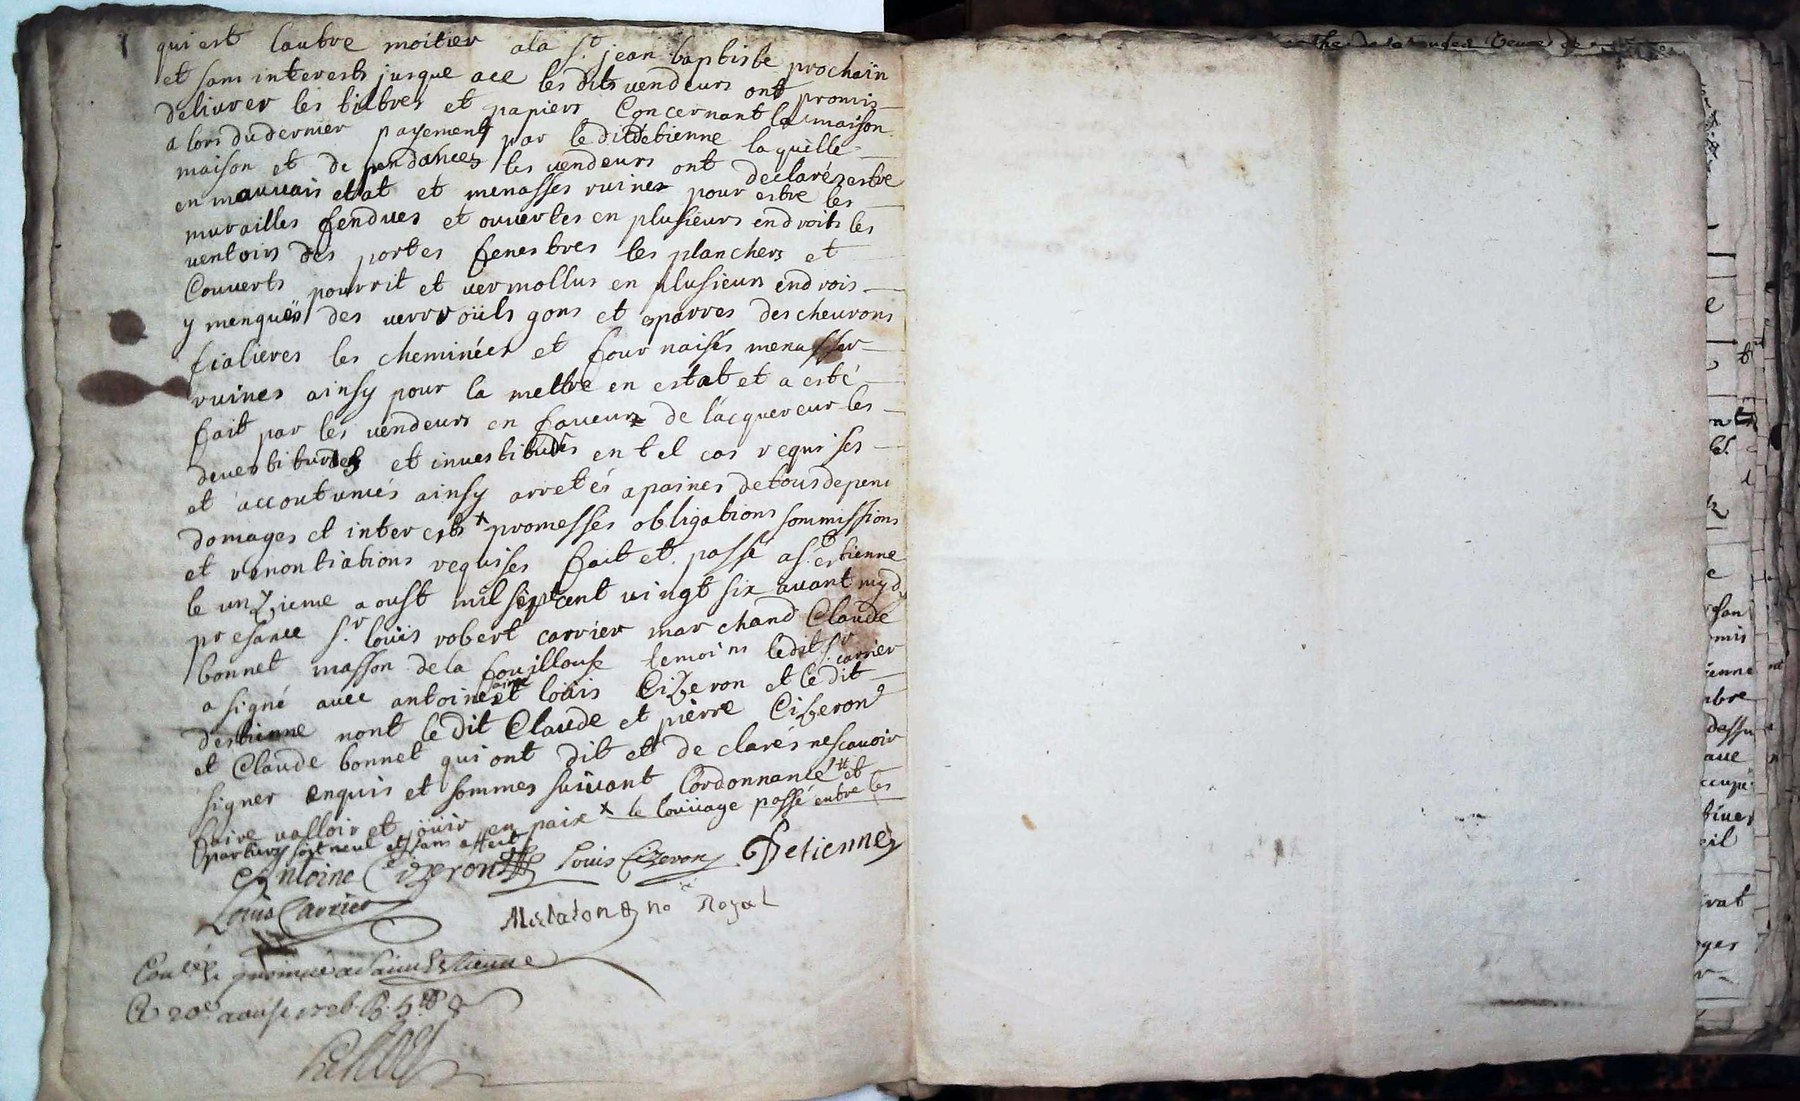 qui est lautre moitier a la St. jean baptiste prochain
et sans interests jusque a ce les dits vendeurs ont promis
delivrer les tiltres et papiers Concernant la maison
a lors du dernier payement par le dit detienne laquelle
maison et dependances les vendeurs ont declarés estre
en mauvais etat et menasses ruines pour estre les
murailles fendues et ouvertes en plusieurs endroits les
ventoirs des portes fenestres les planchers et
Couverts pourrit et vermollus en plusieurs endrois
y menques des verroüils gons et esparres des cheurons
fialieres les cheminées et fournaises menasser
ruines ainsy pour la mettre en estat et a esté
fait par les vendeurs en faveur de lacquereur les
devestitures et investitures en tel cas requises
et accoutumés ainsy arretés a paines de tous depens
domages et interests x promesses obligations sommissions
et renontiations requises fait et passé a St. estienne
le unzieme aoust mil sept cent vingt six avant mydy
presance Sr. louis robert carrier marchand Claude
bonnet masson de la fouillouse temoins ledit Sr. carrier
a signé avec antoine et louis Cizeron et le dit
destienne nont le dit Claude et pierre Cizeron
et Claude bonnet qui ont dit et declarés ne scavoir
signer enquis et sommes suivant Lordonnance # et
faire valloir et jouir en paix x le louuage passé entre les
parties soit neul et sans effect
Antoine Cizeron Louis Cizeron Detienne
Louis Carrier
no Royal
a Saint Estienne
Ce 20e aoust 1726